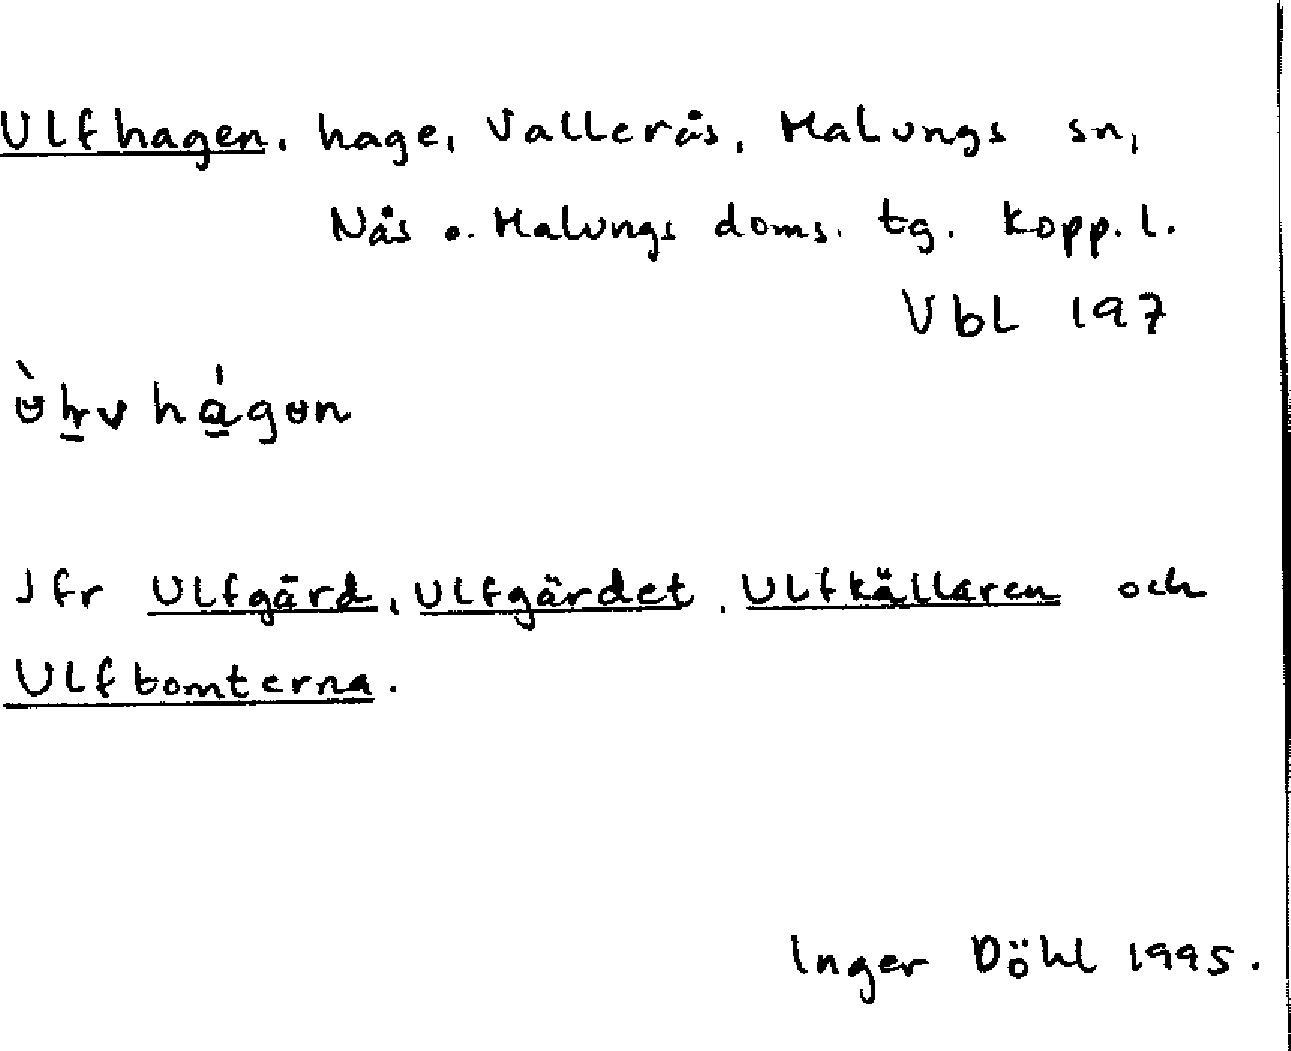 Ulfhagen, hage, Vallerås, Malungs sn,
Nås o. Malungs doms. tg. Kopp. l.
Vbl 197
Jfr Ulfgärd, Ulfgärdet, Ulfkällaren och
Ulftomterna.
Inger Döhl 1995.